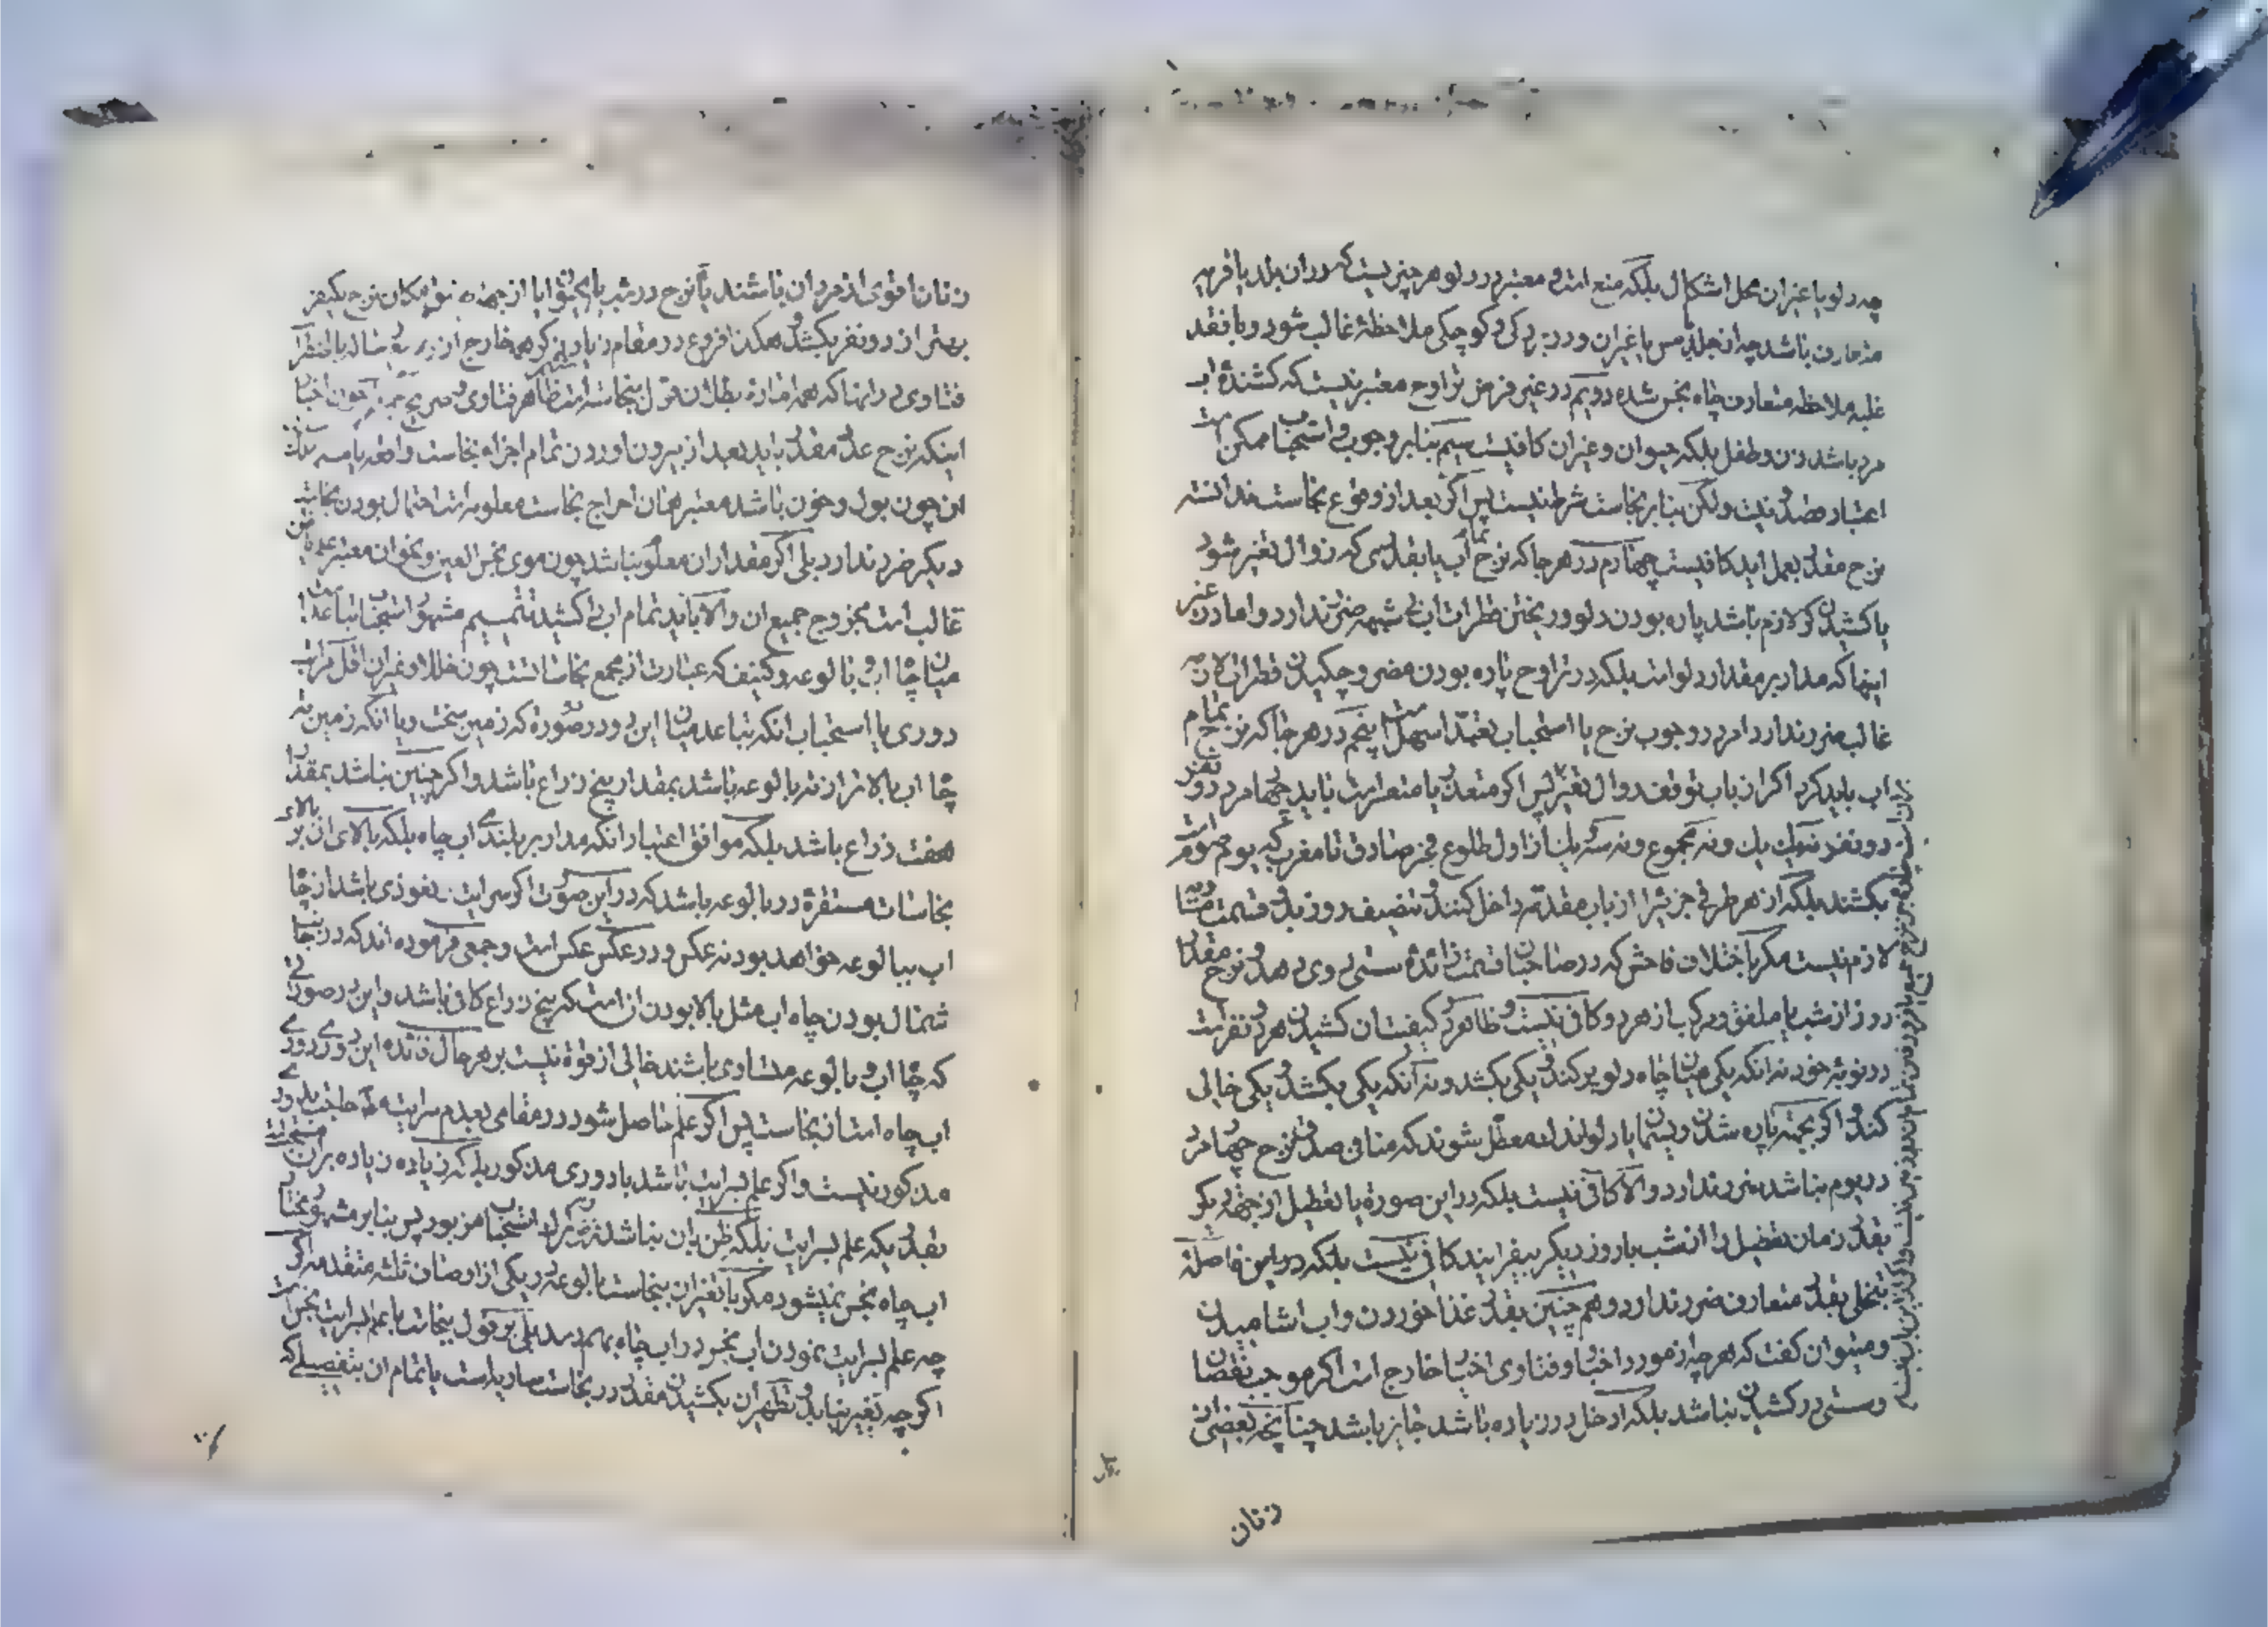 چه دلو یا غیر ان محل اشکال بلکه منع است و معتبر در دلو هر چیزیست که در ان بلد یا قریه
متعارف باشد چه از جلد مس یا غیر ان و در بزرکی و کوچکی ملاحظهٔ غالب شود و با فقد
غلبه ملاحظه متعارف چاه نجس شده دویم در غیر فرض تراوح معتبر نیست که کشندهٔ اب
مرد باشد زن و طفل بلکه حیوان و غیر ان کافیست سیم بنا بر وجوب و استحباب ممکن است
اعتبار قصد نیت ولکن بنا بر نجاست شرط نیست پس اکر بعد از وقوع نجاست ندانسته
نزح مقدر بعمل اید کافیست چهارم در هر جا که نزح تمام آب یا بقدری که زوال تغیر شود
یا کشیدن کر لازم باشد پاره بودن دلو و ریختن قطرات اب بی شبهه ضرر ندارد و اما در غیر
اینها که مدار بر مقدار دلو است بلکه در تراوح پاره بودن مضر و چکیدن قطرات لازمه
غالب ضرر ندارد امر در وجوب نزح یا استحباب تعبدا سهل است پنجم در هر جا که نزح تمام
اب باید کرد اکر از باب توقف زوال تغیر پس اکر متعذر یا متعسر است باید چهار مرد دو نفر
دو نفر نه یك یك و نه مجموع و نه سه یك از اول طلوع فجر صادق تا مغرب که یوم صوم است
بکشند بلکه از هر طرفی جزئی را از باب مقدمه داخل کنند و تنصیف روز بدو قسمت
لازم نیست مکر با اختلاف فاحش که در صاحبان قسمت زائده سستی روی دهد و نزح مقدار
روز از شب یا ملفق و مرکب از هر دو کافی نیست و ظاهر در کیفیت ان کشیدن هر دو نفر است
در نوبهٔ خود نه انکه یکی میان چاه دلو پر کند و یکی بکشد و نه انکه یکی بکشد و یکی خالی
کند و اکر بجهة پاره شدن ریسمان یا دلو اندك معطل شوند که منافی صدق نزح چهار مرد
در یوم نباشد ضرر ندارد و الا کافی نیست بلکه در این صورة یا تعطیل از جهة دیکر
بقدر زمان تعطیل را از شب یا روز دیکر بیفزایند کافی نیست بلکه در این فاصله
بتخلی بقدر متعارف ضرر ندارد و هم چنین بقدر غذا خوردن و اب اشامیدن
و میتوان کفت که هر چه از مورد اخبار و فتاوی اخبار خارج است اکر موجب نقصان
و سستی در کشیدن نباشد بلکه ادخل در زیاده باشد جایز باشد چنانچه بعضی از
زنان
زنان اقوی از مردان باشند یا نزح در شب
بهتر از دو نفر بکشد و هکذا فروع در مقام زیاد
اینکه نزح عدد مقدر باید بعد از بیرون اوردن تمام اجزاء نجاست واقعه
ان چون بول و خون باشد معتبر همان اخراج نجاست معلومه است احتمال بودن نجاست
دیکر ضرر ندارد بلی اکر مقدار ان معلوم نباشد چون موی نجس العین و نحو ان معتبر علم یا ظن
غالب است بخروج جمیع ان و الا باید تمام اب را کشید تتمیم مشهور استحباب تباعد است
میان چاه اب و بالوعه و کنیف که عبارت از مجمع نجاساتست چون خلا و غیر ان اقل مراتب
دوری یا استحباب انکه تباعد میان این دو در صورة که زمین سخت و یا انکه زمین ته
چاه اب بالاتر از ته بالوعه باشد بمقدار پنج زراع باشد و اکر چنین نباشد بمقدار
هفت زراع باشد بلکه موافق اعتبار انکه مدار بر بلندی اب چاه بلکه بالای ان بر بالای
نجاسات مستقرة در بالوعه باشد که در این صورت اکر سرایت و نفوذی باشد از چاه
اب ببالوعه خواهد بود نه عکس و در عکس عکس است و جمعی فرموده اند که در جانب
شمال بودن چاه اب مثل بالا بودن ان است که پنج زراع کافی باشد و این در صورتی
که چاه اب و بالوعه متساوی باشند خالی از قوة نیست بر هر حال فائده این دوری دوری
اب چاه است از نجاست پس اکر علم حاصل شود در مقامی بعدم سرایت حاجت بدوری
مذکور نیست و اکر علم بسرایت باشد با دوری مذکور بلکه زیاده زیاده بر ان مستحب است
بقدریکه علم بسرایت بلکه ظن بان نباشد استحباب مزبور پس بنا بر مشهور مختار
اب چاه نجس نمیشود مکر با تغیر ان بنجاست بالوعه در یکی از اوصاف ثلثه متقدمه اکر
چه علم بسرایت نمودن اب نجس در اب چاه بهم رسد بلی بر قول بنجاست با علم بسرایت نجس است
اکر چه تغیر نیابد و تطهیر ان بکشیدن مقدر در نجاست ساریه است یا تمام ان بتفصیلی که